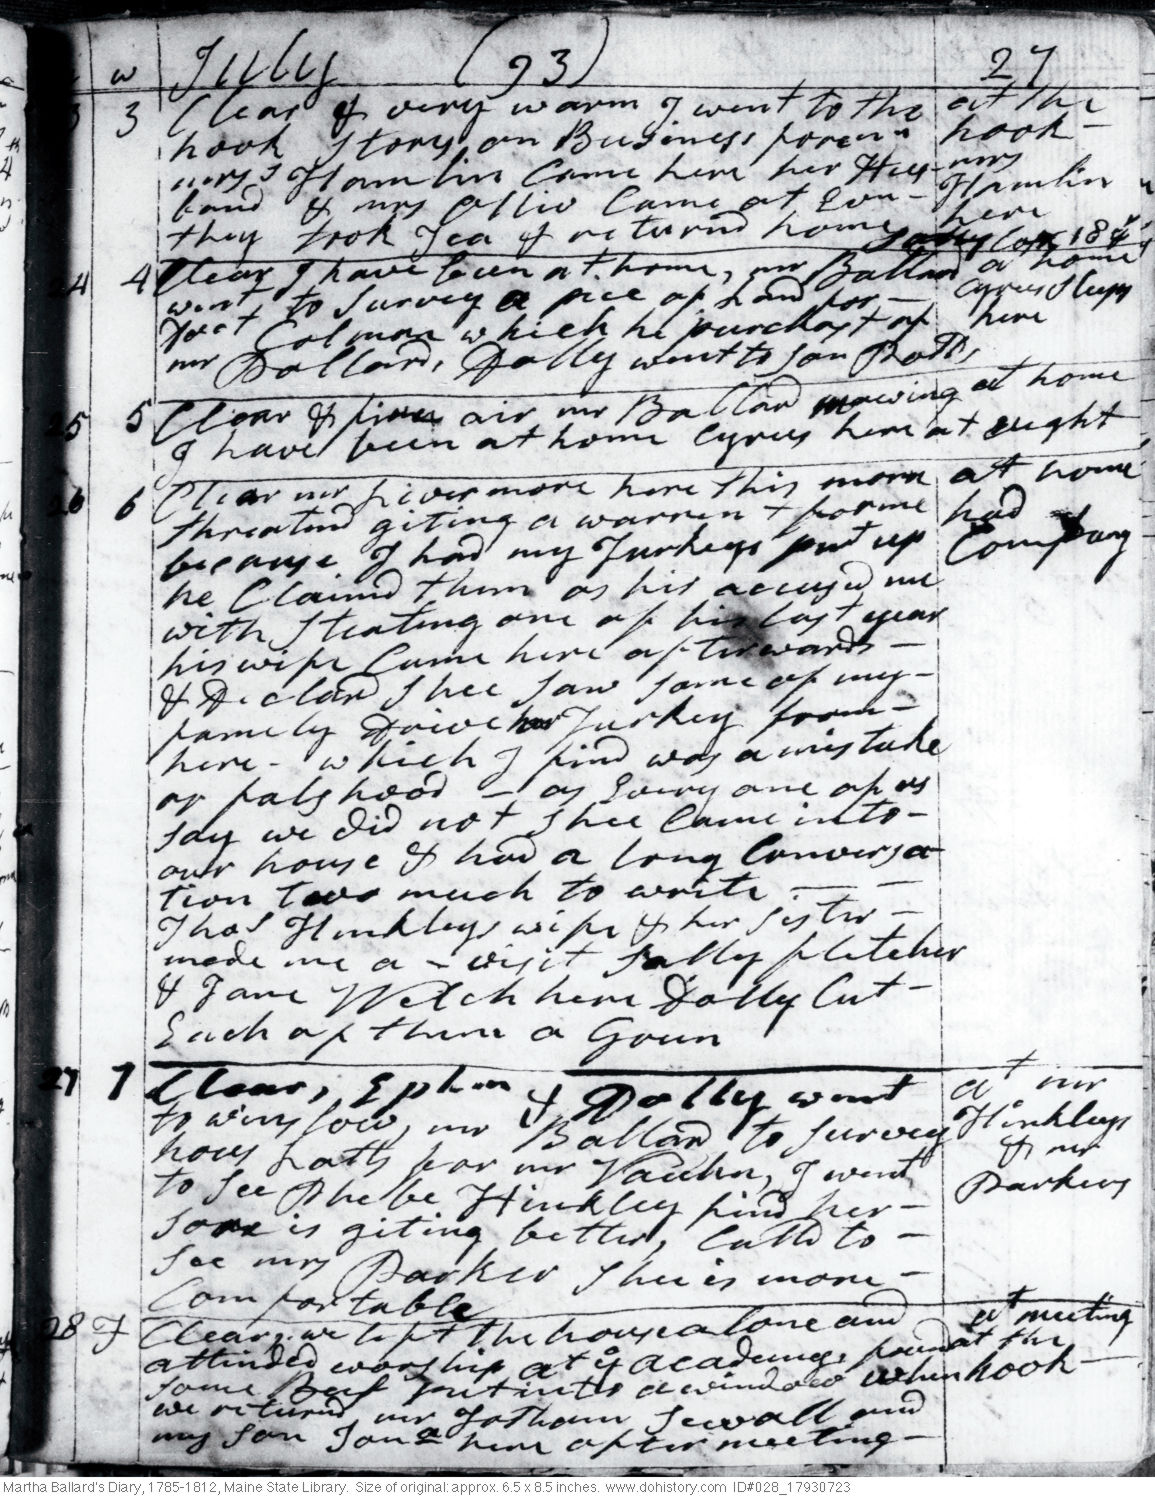 w July (93) 27
3 3 Clear & very warm I went to the at the
hook Stors, on Business foren n hook
mrs Hamlin Came here her Hus- mrs
band & mrs Ollio Came at Evn- Hamlin
they took Tea & returnd home here
24 4 Clear I have been at home, mr Ballard at home
went to Survey a pice of Land for Cyrus Sleeps
Colman which he purchast of here
mr Pollard, Dolly went to son
25 5 Clear & fine air mr Ballard mowing at home
I have been at home Cyrus here at night
26 6 Clear mr Livermore here this morn at home
threatnd giting a warren t for me had
because I had my Turkeys put up Company
he Claimd them as his accusd me
with Steating one of his last year
his wife Came here afterwards-
& Declard Shee Saw Some of my-
famely Drive her Turkey from-
here- which I find was a mistake
or falshood - as Every one of us
say we did not Shee Came into-
our house & had a long Conversa
tion two much to write - -
Thos Hinkleys wife & her sister -
made me a - visit Sally fletcher
& Jane Welch here Dolly Cut -
Each of them a Goun
27 7 Clear, Ephm & Dolly went at mr
to winslow, mr Ballard to Survey Hinkleys
hous Lotts for mr Vauhn, I went & mr
to See Phebe Hinkley find her- Parkers
Sore is giting better, Calld to -
See mrs Parker Shee is more -
Comfortable
28 F Clear, we left the house alone and at meeting
attinded worship at ye academy, found at the
Some Beef Put into a window when hook
we returnd, mr Jotham Sewall and
my son Jona here after meeting-
Martha Ballard's Diary, 1785-1812, Maine State Library. Size of original: approx. 6.5 x 8.5 inches. www.dohistory.com ID#028_17930723